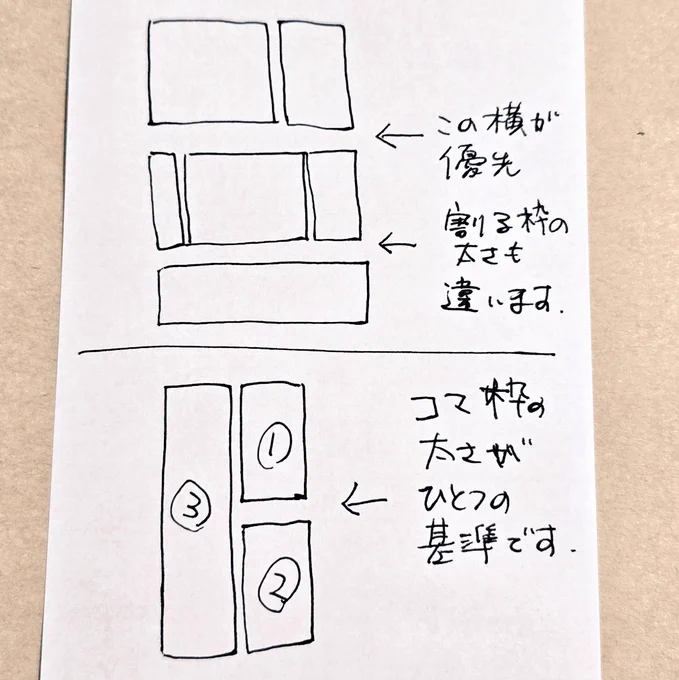 この横が
優先
割る枠の
太さも
違います.
コマ枠の
太さが
ひとつの
基準です.
①
②
③